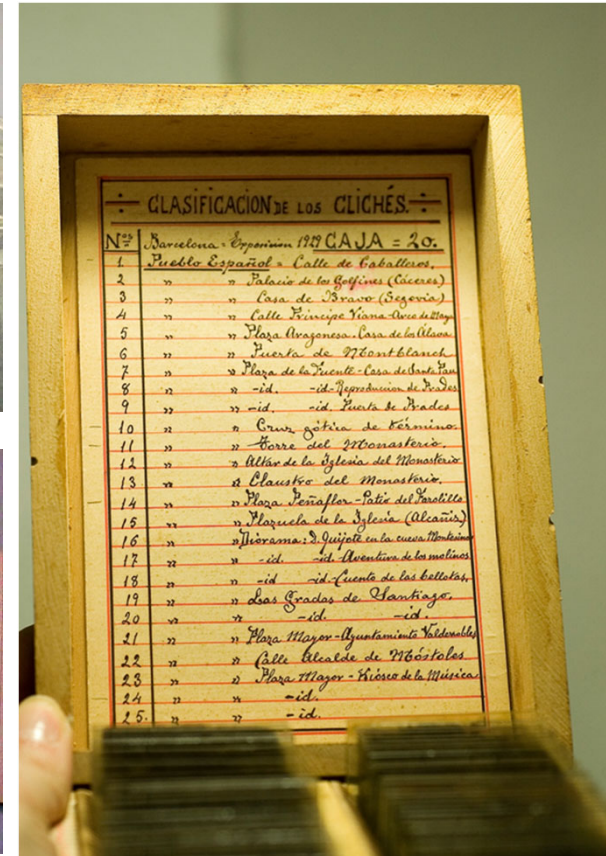 CLASIFICACION DE LOS CLICHÉS.
Nos Barcelona = Exposicion 1929 CAJA = 20.
1. Pueblo Español = Calle de Caballeros.
2 " " Palacio de los Golfines (Cáceres)
3 " " Casa de Bravo (Segovia)
4 " " Calle Principe Viana - Arco de Maya
5 " " Plaza Aragonesa. Casa de los
6 " " Puerta de Montblanch
7 " " Plaza de la Fuente - Casa de Santa Pau
8 " " - id. - id - Reproduccion de Prades
9 " " - id. id. Puerta de Prades
10 " " Cruz gótica de término.
11 " " Torre del Monasterio.
12 " " Altar de la Iglesia del Monasterio
13 " " Claustro del Monasterio.
14 " " Plaza Peñaflor - Patio del Farolillo
15 " " Plazuela de la Iglesia (Alcañis)
16 " " Diorama: D. Quijote en la cueva Montesinos
17 " " - id. - id - Aventura de los molinos
18 " " - id - id - Cuento de las bellotas,
19 " " Las Gradas de Santiago.
20 " " - id. - id.
21 " " Plaza Mayor - Ayuntamiento Valderrobles
22 " " Calle Alcalde de Móstoles
23 " " Plaza Mayor - Kiosco de la Música
24 " " - id.
25. " " - id.